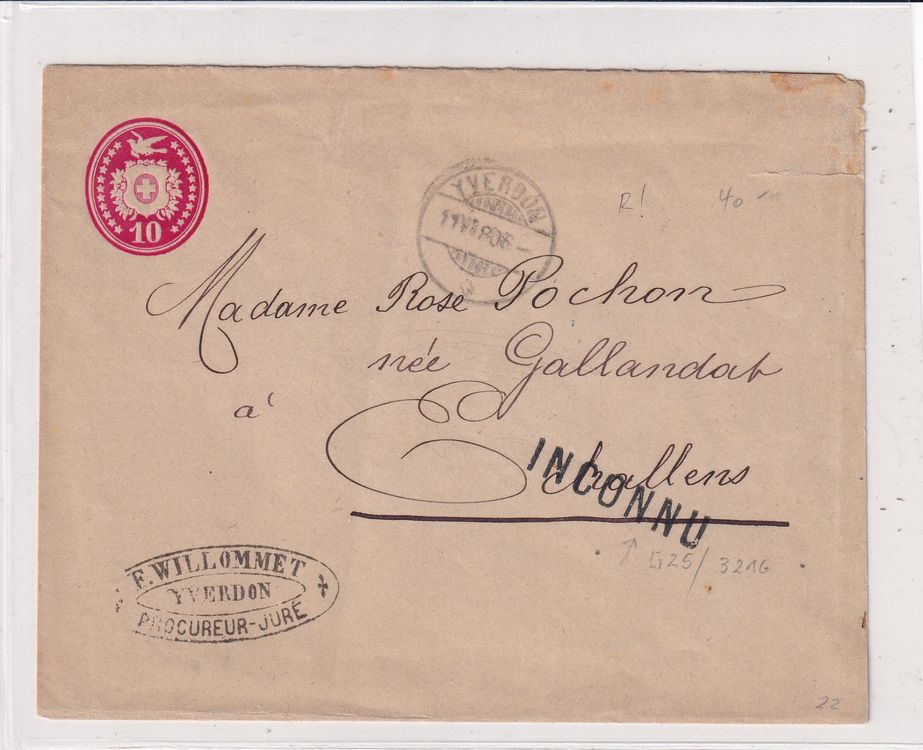 10
YVERDON
R! 40
Madame Rose Pochon
née Gallandat
à Echallens
INCONNU
G25/3216
F. WILLOMMET
YVERDON
PROCUREUR-JURÉ
22